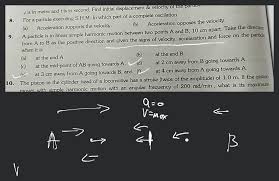 x is in meter and t is second. Find initial displacement & velocity of the pa
8. For a particle executing S.H.M. in which part of a complete oscillation
(a) Acceleration supports the velocity (b) Acceleration opposes the velocity
9. A particle is in linear simple harmonic motion between two points A and B, 10 cm apart. Take the direction
from A to B as the positive direction and given the signs of velocity, acceleration and force on the particle
when it is
(a) at the end A (b) at the end B
(c) at the mid-point of AB going towards A (d) at 2 cm away from B going towards A
(e) at 3 cm away from A going towards B, and (f) at 4 cm away from A going towards A.
10. The piston in the cylinder head of a locomotive has a stroke (twice of the amplitude) of 1.0 m. If the piston
moves with simple harmonic motion with an angular frequency of 200 rad/min, what is its maximum
a=0
V=max
A B
V